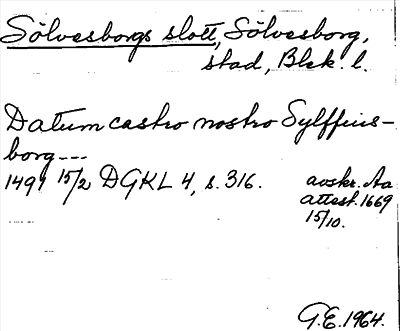 Sölvesborgs slott, Sölvesborg,
stad, Blek. l.
Datum castro nostro Sylffuis-
borg ---
1491 15/2 DGKL 4, s. 316.
avskr. Aa
attest. 1669
15/10.
G.E. 1964.